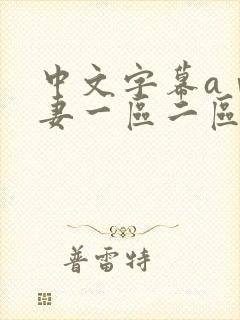 中文字幕a
妻一區二區
普雷特